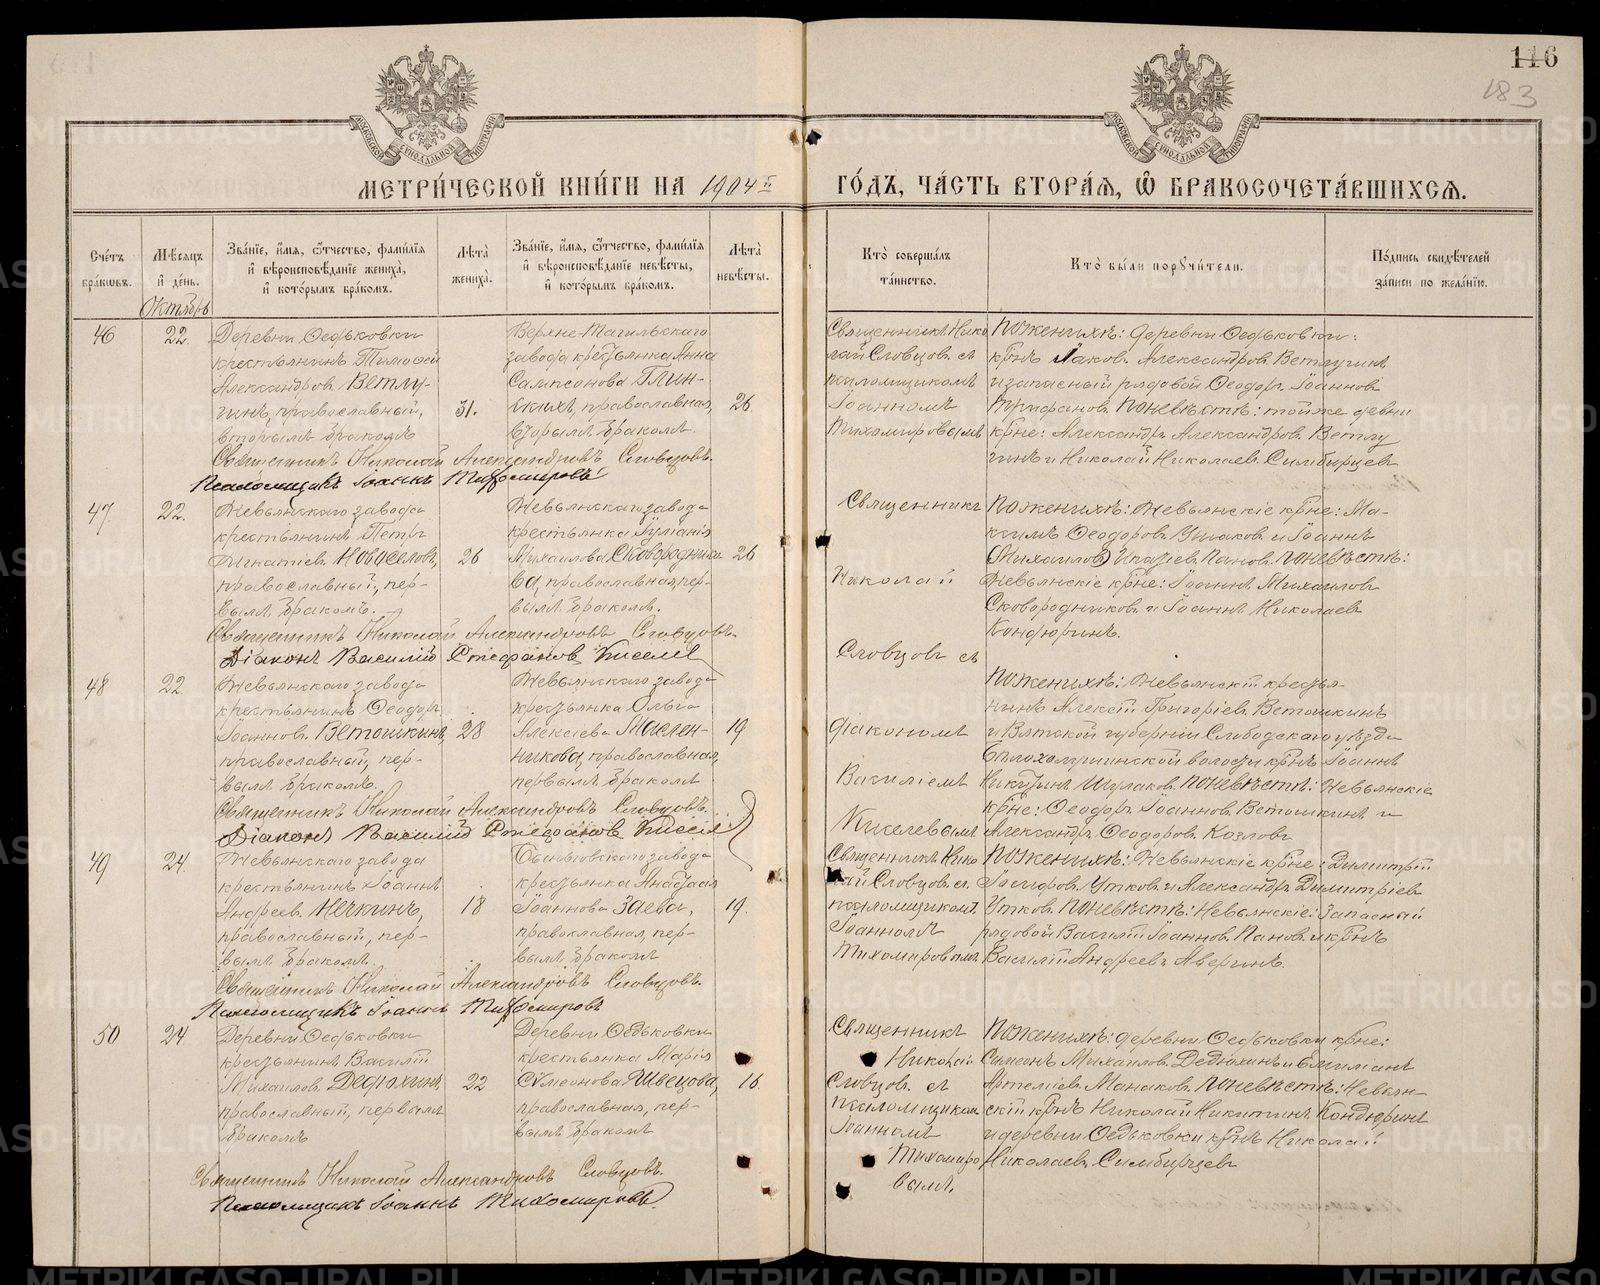 116
183
МЕТРИ́ЧЕСКОЙ КНИ́ГИ НА 1904 й ГО́ДЪ, ЧА́СТЬ ВТОРА́Я, Ѽ БРАКОСОЧЕТА́ВШИХСЯ.
Сче́тъ бра́ковъ.
Мѣ́сяцъ и де́нь.
Октябрь
Зва́нїе, и́мя, ѻ́тчество, фами́лїя и вѣроисповѣ́данїе жениха̀, и кото́рымъ бра́комъ.
Лѣта̀ жениха̀.
Зва́нїе, и́мя, ѻ́тчество, фами́лїя и вѣроисповѣ́данїе невѣ́сты, и кото́рымъ бра́комъ.
Лѣта̀ невѣ́сты.
Кто̀ соверша́лъ та́инство.
Кто̀ бы́ли порꙋчи́тели.
По́дпись свидѣ́телей за́писи по жела́нїю.
46
22.
Деревни Ѳедьковки
крестьянинъ Тимоѳей
Александров Ветлу-
гинъ, православный,
вторымъ бракомъ
31.
Верхне-Тагильскаго
завода крестьянка Анна
Сампсонова Глин-
скихъ, православная,
вторымъ бракомъ.
26.
Священникъ Нико
лай Словцовъ съ
псаломщикомъ
Іоанномъ
Тихомировымъ
По женихѣ: деревни Ѳедьковки:
кр̃нъ Іаковъ Александров Ветлугинъ
и запасный рядовой Ѳеодоръ Іоаннов
Трифановъ. По невѣстѣ: той же девни
кр̃не: Александръ Александров Ветлу
гинъ и Николай Николаев Симбирцевъ
Священникъ Николай Александровъ Словцовъ.
Псаломщикъ Іоаннъ Тихомировъ
47
22.
Невьянскаго завода
крестьянинъ Петръ
Игнатіев Новоселов,
православный, пер-
вымъ бракомъ.
26
Невьянскаго завода
крестьянка Іуліанія
Михаилова Сковороднико
ва, православная, пер-
вымъ бракомъ.
26
Священникъ
Николай
Словцовъ съ
По женихѣ: Невьянскіе кр̃не: Ма-
ксимъ Ѳеодоров Ушаков и Іоаннъ
(Михаилов) Панов. По невѣстѣ:
Невьянскіе кр̃не: Іоаннъ Михаилов
Сковородников и Іоаннъ Николаев
Кондюринъ.
Священникъ Николай Александровъ Словцовъ.
Діаконъ Василій Стефановъ Киселевъ
48
22
Невьянскаго завода
крестьянинъ Ѳеодоръ
Іоаннов Ветошкинъ,
православный, пер-
вымъ бракомъ.
28
Невьянскаго завода
крестьянка Ольга
Алексіева Маслен-
никова, православная,
первымъ бракомъ
19
діакономъ
Василіемъ
Киселевымъ
По женихѣ: Невьянскій крестья-
нинъ Алексій Григоріев Ветошкинъ
и Вятской губерніи Слободскаго уѣзда
Бѣлохолуницкой волости кр̃нъ Іоаннъ
По невѣстѣ: Невьянскіе
кр̃не: Ѳеодоръ Іоаннов Ветошкинъ и
Александръ Ѳеодоров Козловъ
Священникъ Николай Александровъ Словцовъ.
Діаконъ Василій Стефановъ Киселев
49
24.
Невьянскаго завода
крестьянинъ Іоаннъ
Андреев Нечкинъ,
православный, пер-
вымъ бракомъ.
18
Быньговскаго завода
крестьянка Анастасія
Іоаннова Заева,
православная, пер-
вымъ бракомъ
19.
Священникъ Нико
лай Словцовъ съ
псаломщикомъ
Іоанномъ
Тихомировымъ
По женихѣ: Невьянскіе кр̃не: Димитрій
Іосифов Утков и Александръ Димитріев
Утков. По невѣстѣ: Невьянскіе: Запасный
рядовой Василій Іоаннов Панов и кр̃нъ
Василій Андреев Аверинъ.
Священникъ Николай Александровъ Словцовъ.
Псаломщикъ Іоаннъ Тихомировъ
50
24.
Деревни Ѳедьковки
крестьянинъ Василій
Михаилов Дедюхинъ,
православный, первымъ
бракомъ
22
Деревни Ѳедьковки
крестьянка Марія
Сѵмеонова Швецова,
православная, пер-
вымъ бракомъ
16.
Священникъ
Николай
Словцовъ съ
псаломщиком
Іоанномъ
Тихомиро
вымъ.
По женихѣ: деревни Ѳедьковки кр̃не:
Симеонъ Михаилов Дедюхинъ и Емилианъ
Артеміев Манаков. По невѣстѣ: Невьян-
скій кр̃нъ Николай Никитинъ Кондюринъ
и деревни Ѳедьковки кр̃нъ Николай
Николаев Симбирцевъ
Священникъ Николай Александровъ Словцовъ.
Псаломщикъ Іоаннъ Тихомировъ
METRIKI.GASO-URAL.RU